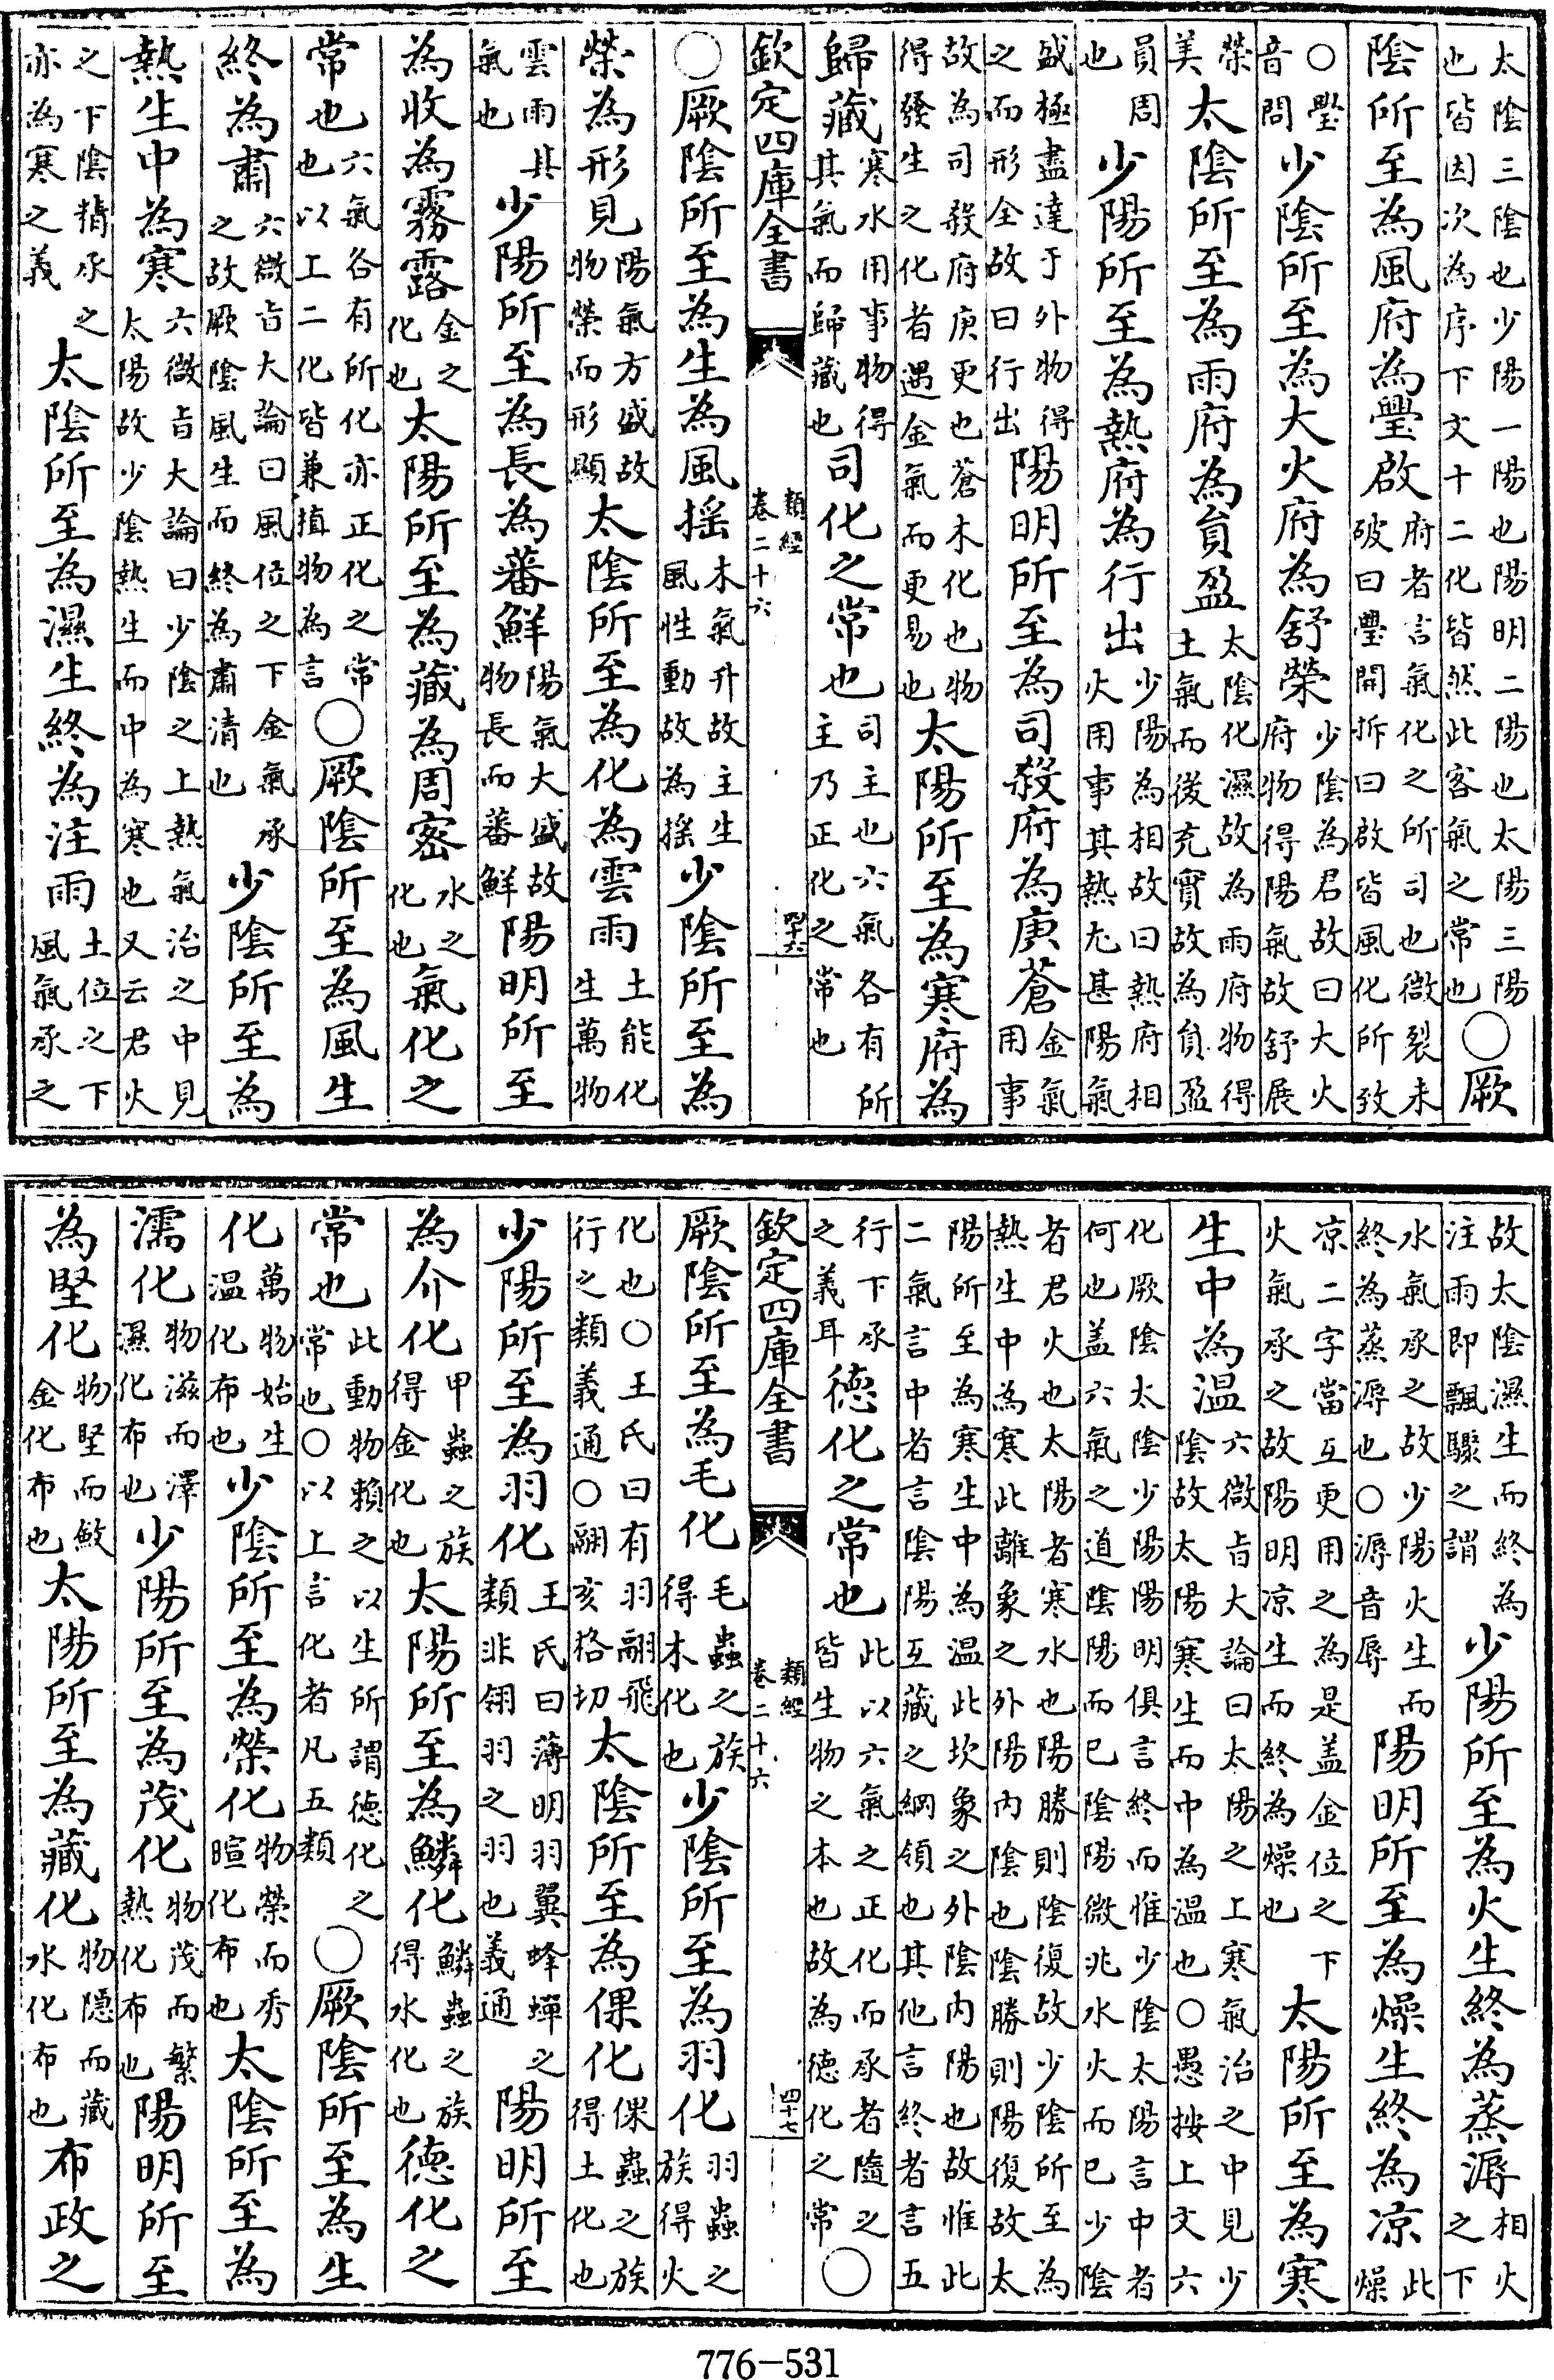 太陰三陰也少陽一陽也陽明二陽也太陽三陽
也皆因次為序下文十二化皆然此客氣之常也〇厥
陰所至為風府為璺啟府者言氣化之所司也微裂未破曰璺開拆曰啟皆風化所致
〇璺音問少陰所至為大火府為舒榮少陰為君故曰大火府物得陽氣故舒展
榮美太陰所至為雨府為員盈太陰化濕故為雨府物得土氣而後充實故為員盈
員周也少陽所至為熱府為行出少陽為相故曰熱府相火用事其熱尤甚陽氣
盛極盡達于外物得之而形全故曰行出陽明所至為司殺府為庚蒼金氣用事
故為司殺府庚更也蒼木化也物得發生之化者遇金氣而更易也太陽所至為寒府為
歸藏寒水用事物得其氣而歸藏也司化之常也司主也六氣各有所主乃正化之常也
欽定四庫全書
類經
卷二十六
四十六
〇厥陰所至為生為風搖木氣升故主生風性動故為搖少陰所至為
榮為形見陽氣方盛故物榮而形顯太陰所至為化為雲雨土能化生萬物
雲雨其氣也少陽所至為長為蕃鮮陽氣大盛故物長而蕃鮮陽明所至
為收為霧露金之化也太陽所至為藏為周密水之化也氣化之
常也六氣各有所化亦正化之常也以上二化皆兼植物為言〇厥陰所至為風生
終為肅六微旨大論曰風位之下金氣承之故厥陰風生而終為肅清也少陰所至為
熱生中為寒六微旨大論曰少陰之上熱氣治之中見太陽故少陰熱生而中為寒也又云君火
之下陰精承之亦為寒之義太陰所至為濕生終為注雨土位之下風氣承之
故太陰濕生而終為注雨即飄驟之謂少陽所至為火生終為蒸溽相火之下
水氣承之故少陽火生而終為蒸溽也〇溽音辱陽明所至為燥生終為凉此燥
凉二字當互更用之為是盖金位之下火氣承之故陽明凉生而終為燥也太陽所至為寒
生中為温六微旨大論曰太陽之上寒氣治之中見少陰故太陽寒生而中為温也〇愚按上文六
化厥陰太陰少陽陽明俱言終而惟少陰太陽言中者何也盖六氣之道陰陽而已陰陽微兆水火而已少陰
者君火也太陽者寒水也陽勝則陰復故少陰所至為熱生中為寒此離象之外陽内陰也陰勝則陽復故太
陽所至為寒生中為温此坎象之外陰内陽也故惟此二氣言中者言陰陽互藏之綱領也其他言終者言五
行下承之義耳德化之常也此以六氣之正化而承者隨之皆生物之本也故為德化之常〇
欽定四庫全書
類經
卷二十六
四十七
厥陰所至為毛化毛蟲之族得木化也少陰所至為羽化羽蟲之族得火
化也〇王氏曰有羽翮飛行之類義通〇翮亥格切太陰所至為倮化倮蟲之族得土化也
少陽所至為羽化王氏曰薄明羽翼蜂蟬之類非翎羽之羽也義通陽明所至
為介化甲蟲之族得金化也太陽所至為鱗化鱗蟲之族得水化也德化之
常也此動物賴之以生所謂德化之常也〇以上言化者凡五類〇厥陰所至為生
化萬物始生温化布也少陰所至為榮化物榮而秀暄化布也太陰所至為
濡化物滋而澤濕化布也少陽所至為茂化物茂而繁熱化布也陽明所至
為堅化物堅而斂金化布也太陽所至為藏化物隱而藏水化布也布政之
776-531